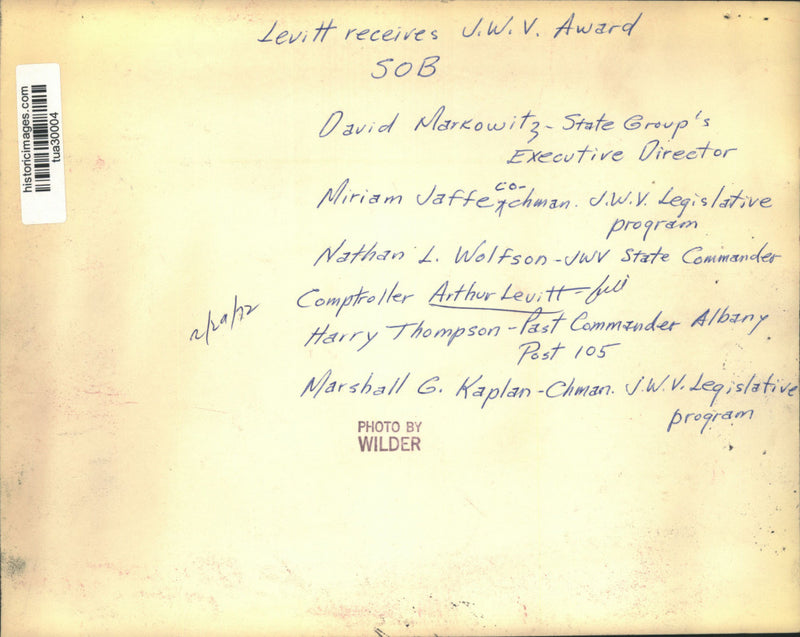 Levitt receives J.W.V. Award
SOB
David Markowitz - State Group's
Executive Director
Miriam Jaffe co-chman. J.W.V. Legislative
program
Nathan L. Wolfson - JWV State Commander
Comptroller Arthur Levitt -
2/29/72
Harry Thompson - Past Commander Albany
Post 105
Marshall G. Kaplan - Chman. J.W.V. Legislative
program
PHOTO BY
WILDER
historicimages.com
tua30004